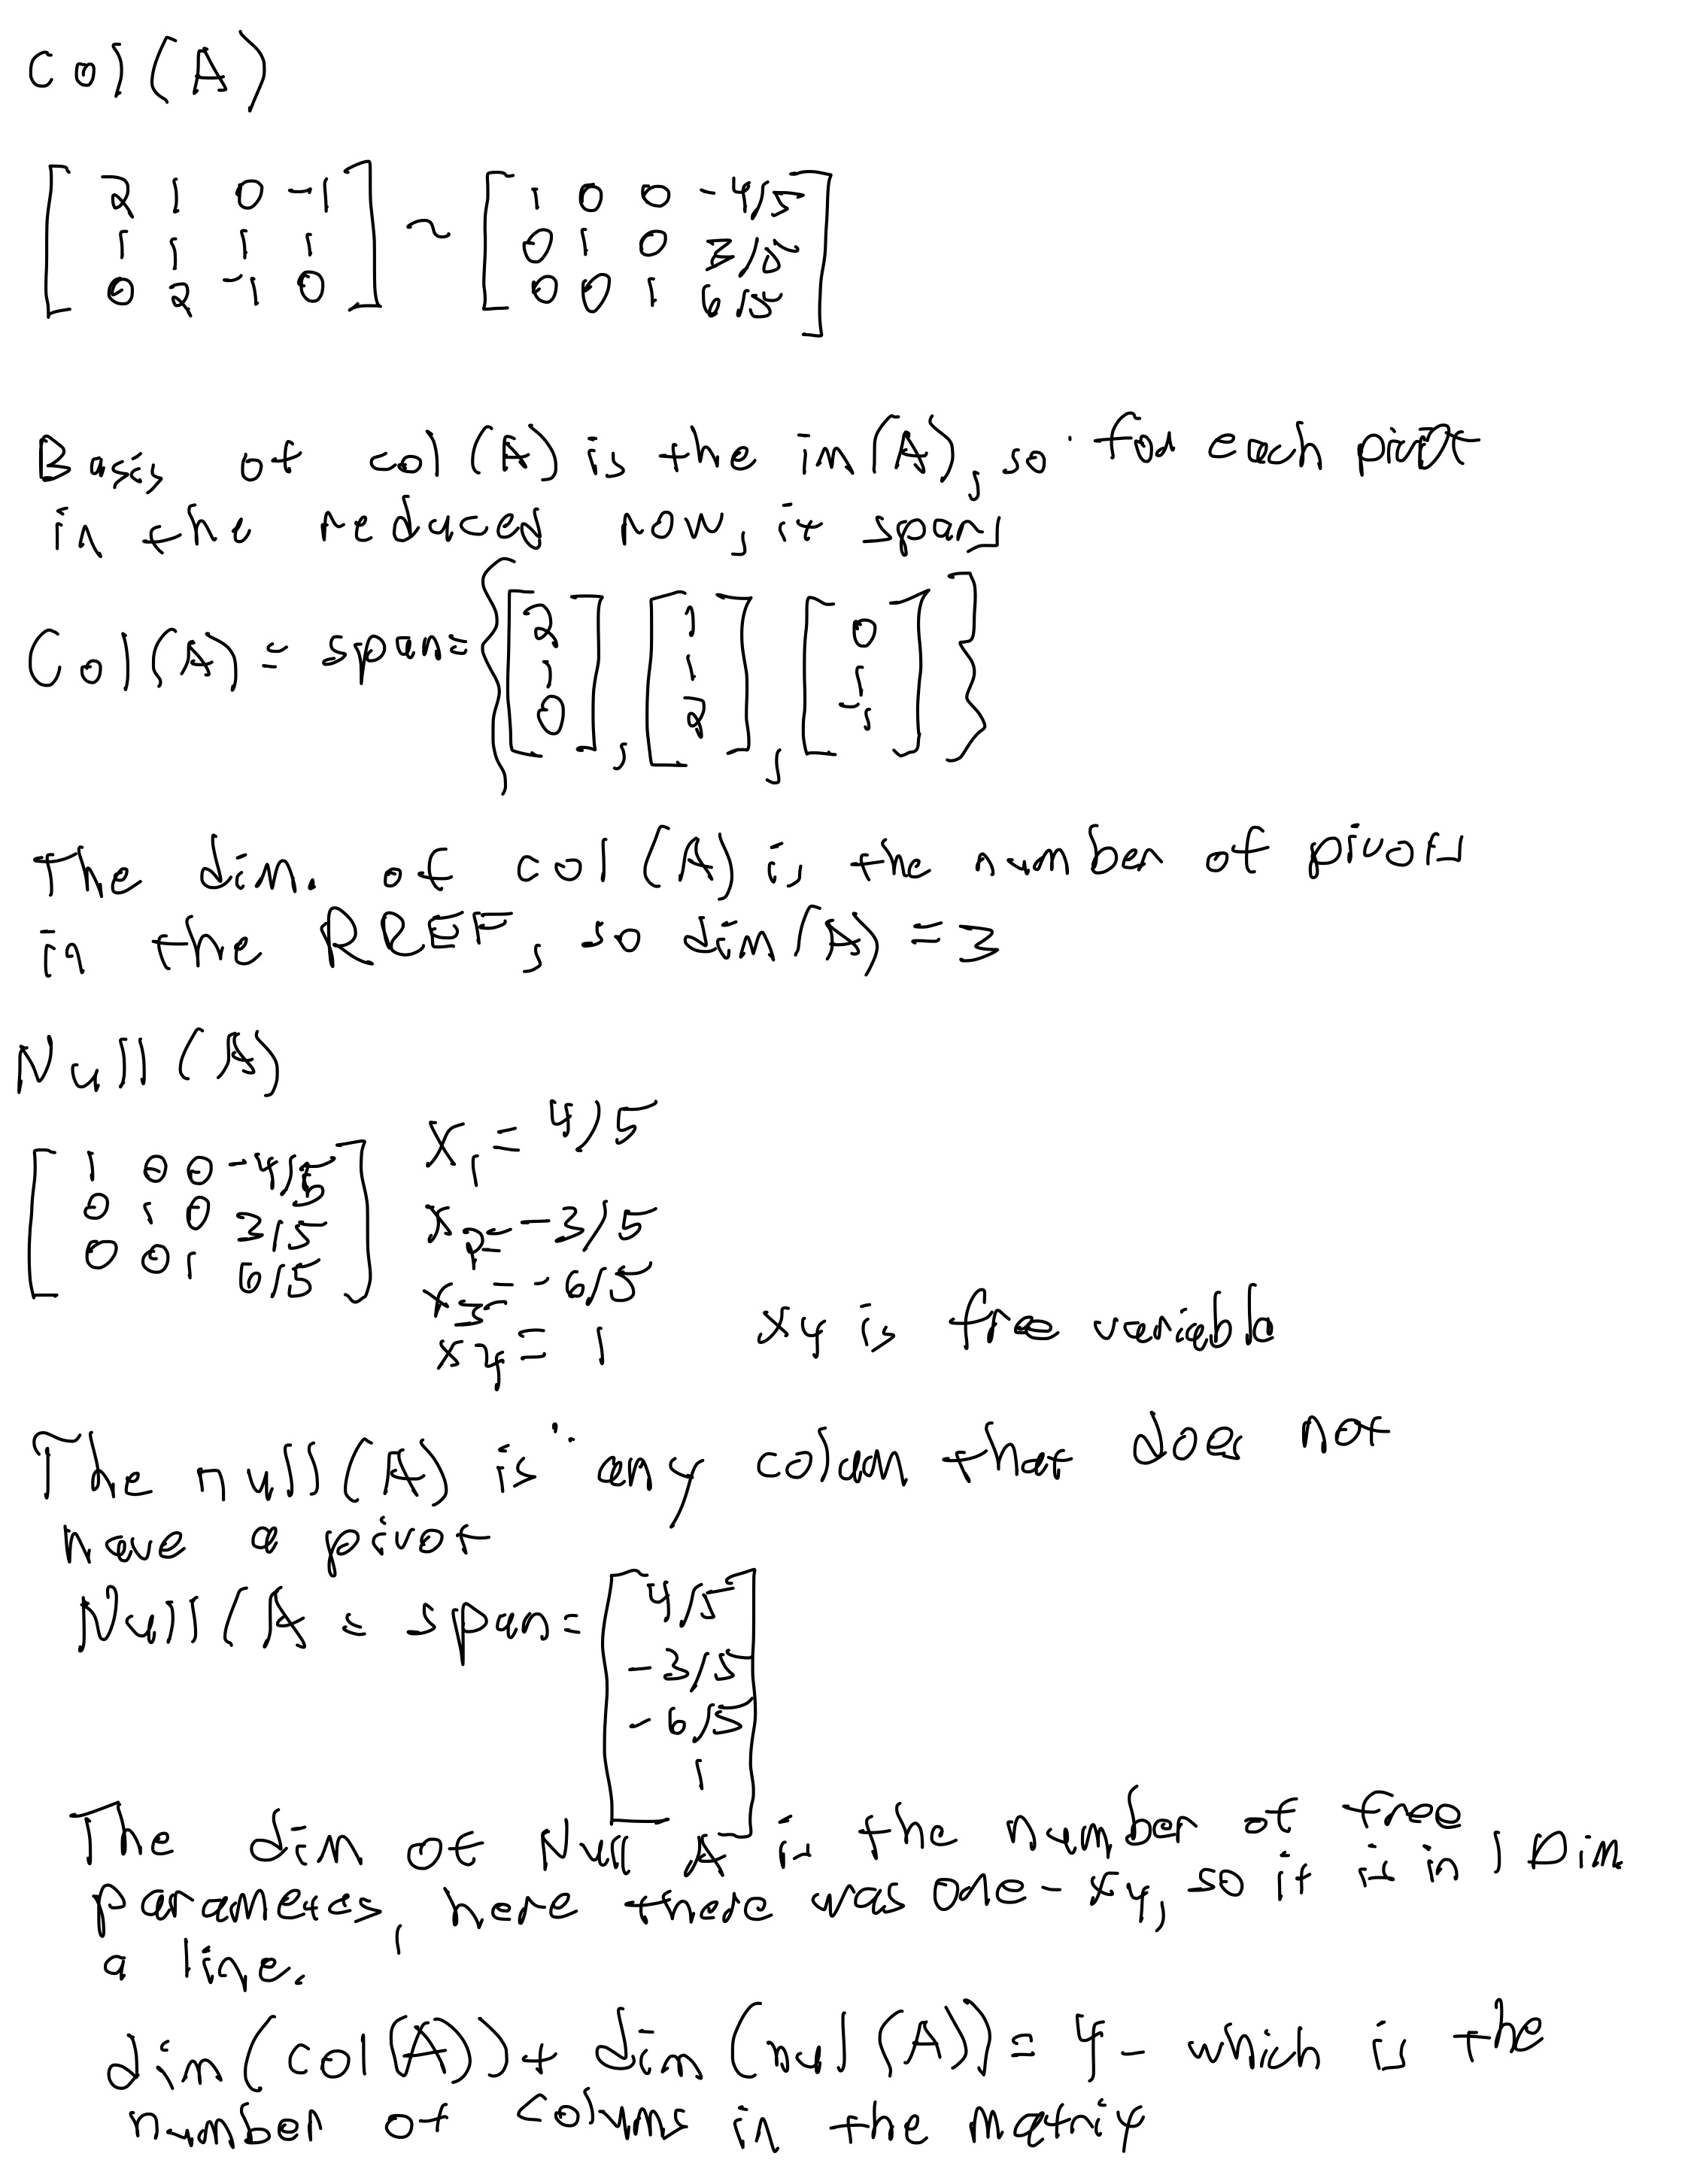 Col(A)
[2 1 0 -1 ~ [1 0 0 -4/5
1 1 1 1 0 1 0 3/5
0 2 -1 0] 0 0 1 6/5]
Basis of col(A) is the im(A), so for each pivot
in the reduced row, it spans
Col(A) = span= {[2 1 0], [1 1 2], [0 1 -1]}
The dim. of col(A) is the number of pivots
in the RREF, so dim(A) = 3
Null(A)
[1 0 0 -4/5 x1 = 4/5
0 1 0 3/5 x2 = -3/5
0 0 1 6/5] x3 = -6/5
x4 = 1 x4 is free variable
The null(A) is any colum that does not
have a pivot
Null(A = span= [4/5
-3/5
-6/5
1]
The dim of Null A is the number of free
parameters, here there was one - x4, so it is in 1 Dim
a line.
dim(col(A)) + dim(nul(A)) = 4 - which is the
number of colums in the matrix